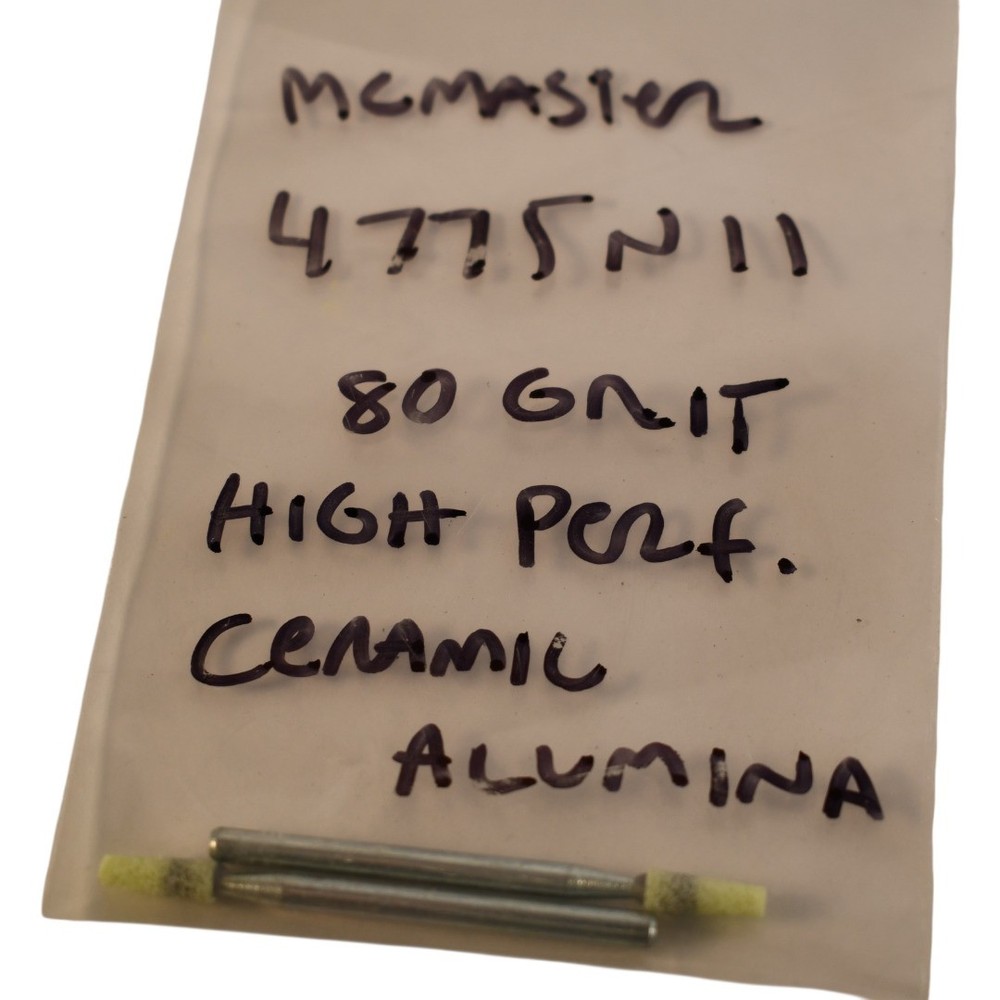 McMASTER
4775N11
80 GRIT
HIGH PERF.
CERAMIC
ALUMINA